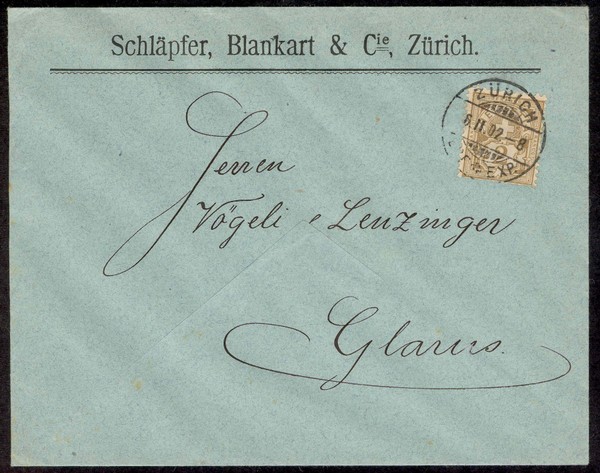 Schläpfer, Blankart & Cie, Zürich.
ZÜRICH
6.II.02.-8
EXP.
Herren
Vögeli & Lenzinger
Glarus.